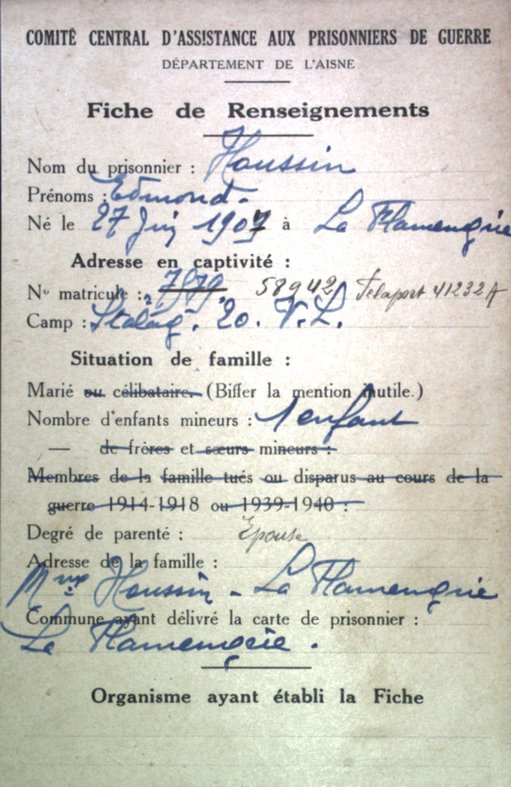 COMITÉ CENTRAL D'ASSISTANCE AUX PRISONNIERS DE GUERRE
DÉPARTEMENT DE L'AISNE
Fiche de Renseignements
Nom du prisonnier : Houssin
Prénoms : Edmond.
Né le 27 Juin 1907 à La Flamengrie
Adresse en captivité :
No matricule : 7879 58942 41232A
Camp : Stalag.
Situation de famille :
Marié ou célibataire. (Biffer la mention inutile.)
Nombre d'enfants mineurs : 1 enfant
— de frères et sœurs mineurs :
Membres de la famille tués ou disparus au cours de la
guerre 1914-1918 ou 1939-1940 :
Degré de parenté : Epouse
Adresse de la famille :
Mme Houssin - La Flamengrie
Commune ayant délivré la carte de prisonnier :
La Flamengrie.
Organisme ayant établi la Fiche